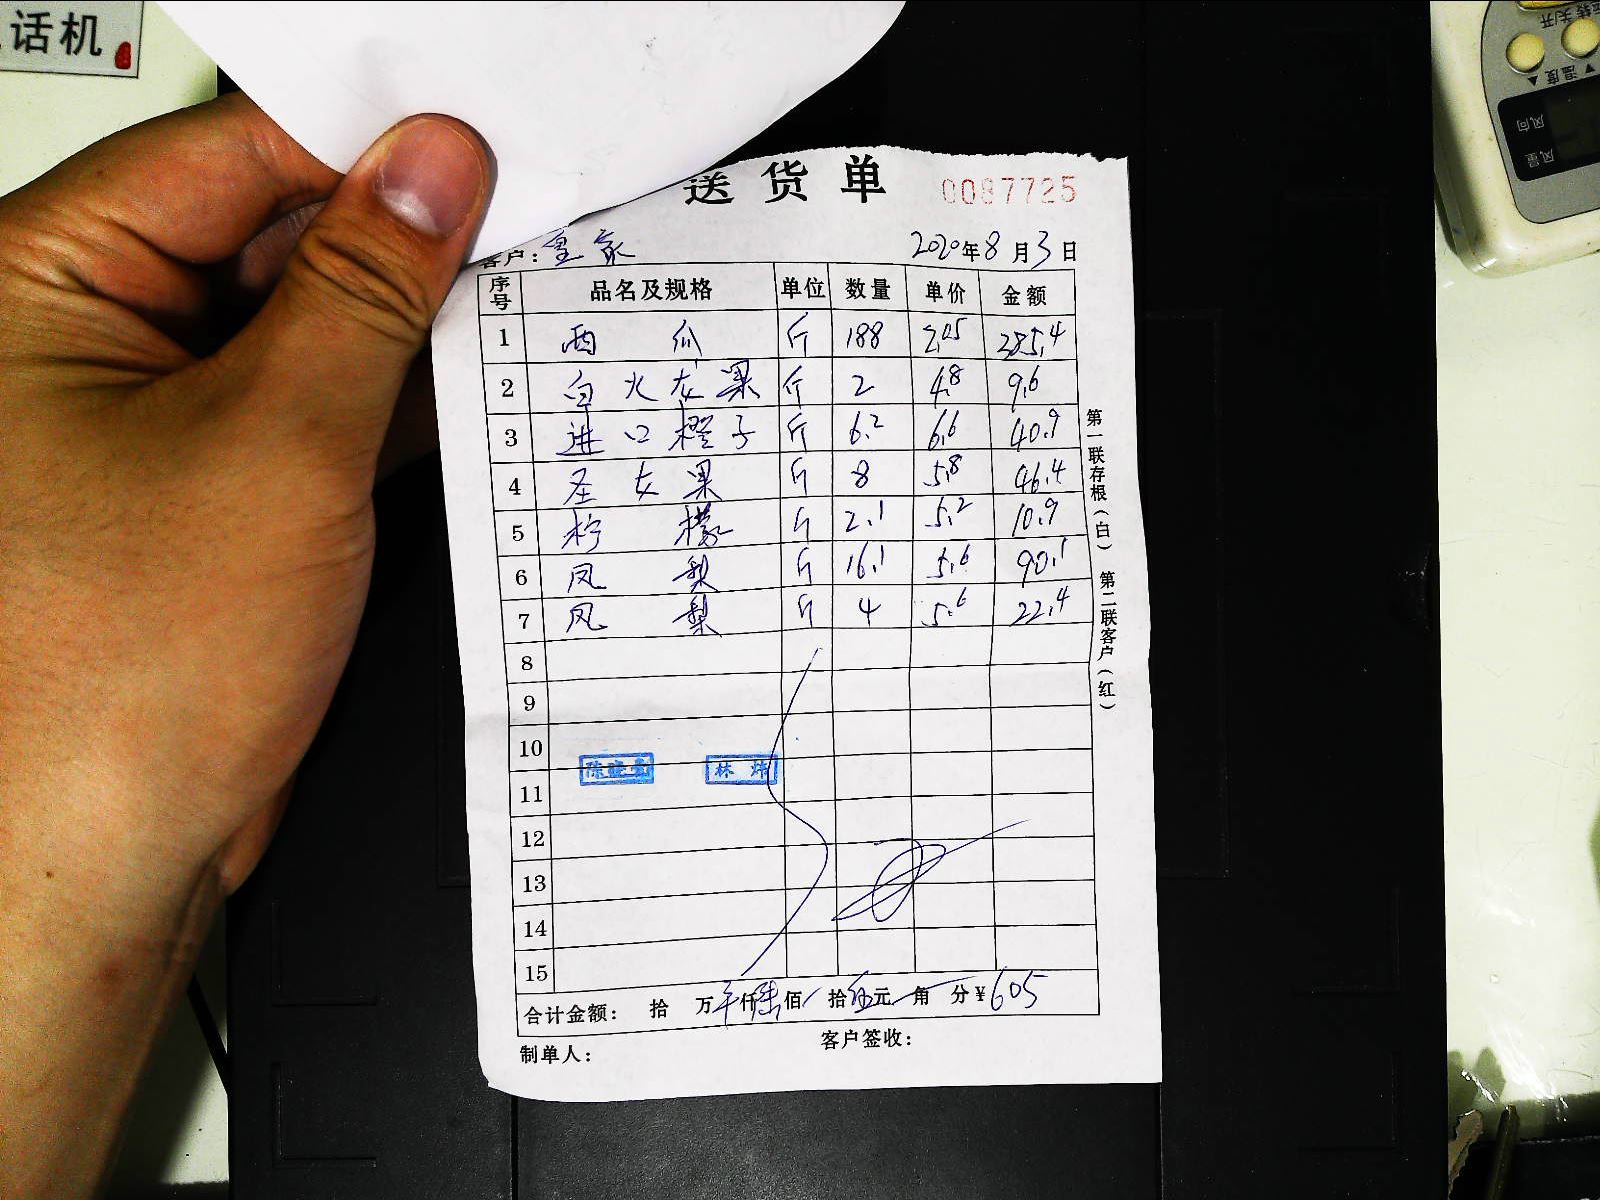 话机
送货单 0087725
客户：皇家 2020年8月3日
序号 品名及规格 单位 数量 单价 金额
1 西瓜 斤 188 2.05 385.4
2 白火龙果 斤 2 4.8 9.6
3 进口橙子 斤 6.2 6.6 40.9
4 圣女果 斤 8 5.8 46.4
5 柠檬 斤 2.1 5.2 10.9
6 凤梨 斤 16.1 5.6 90.1
7 凤梨 斤 4 5.6 22.4
8
9
10
11
林炜
12
13
14
15
合计金额： 拾 万 仟陆佰 拾伍元 角 分¥605
制单人： 客户签收：
第一联存根（白） 第二联客户（红）
运转关/开
▼温度▲
风向
风量